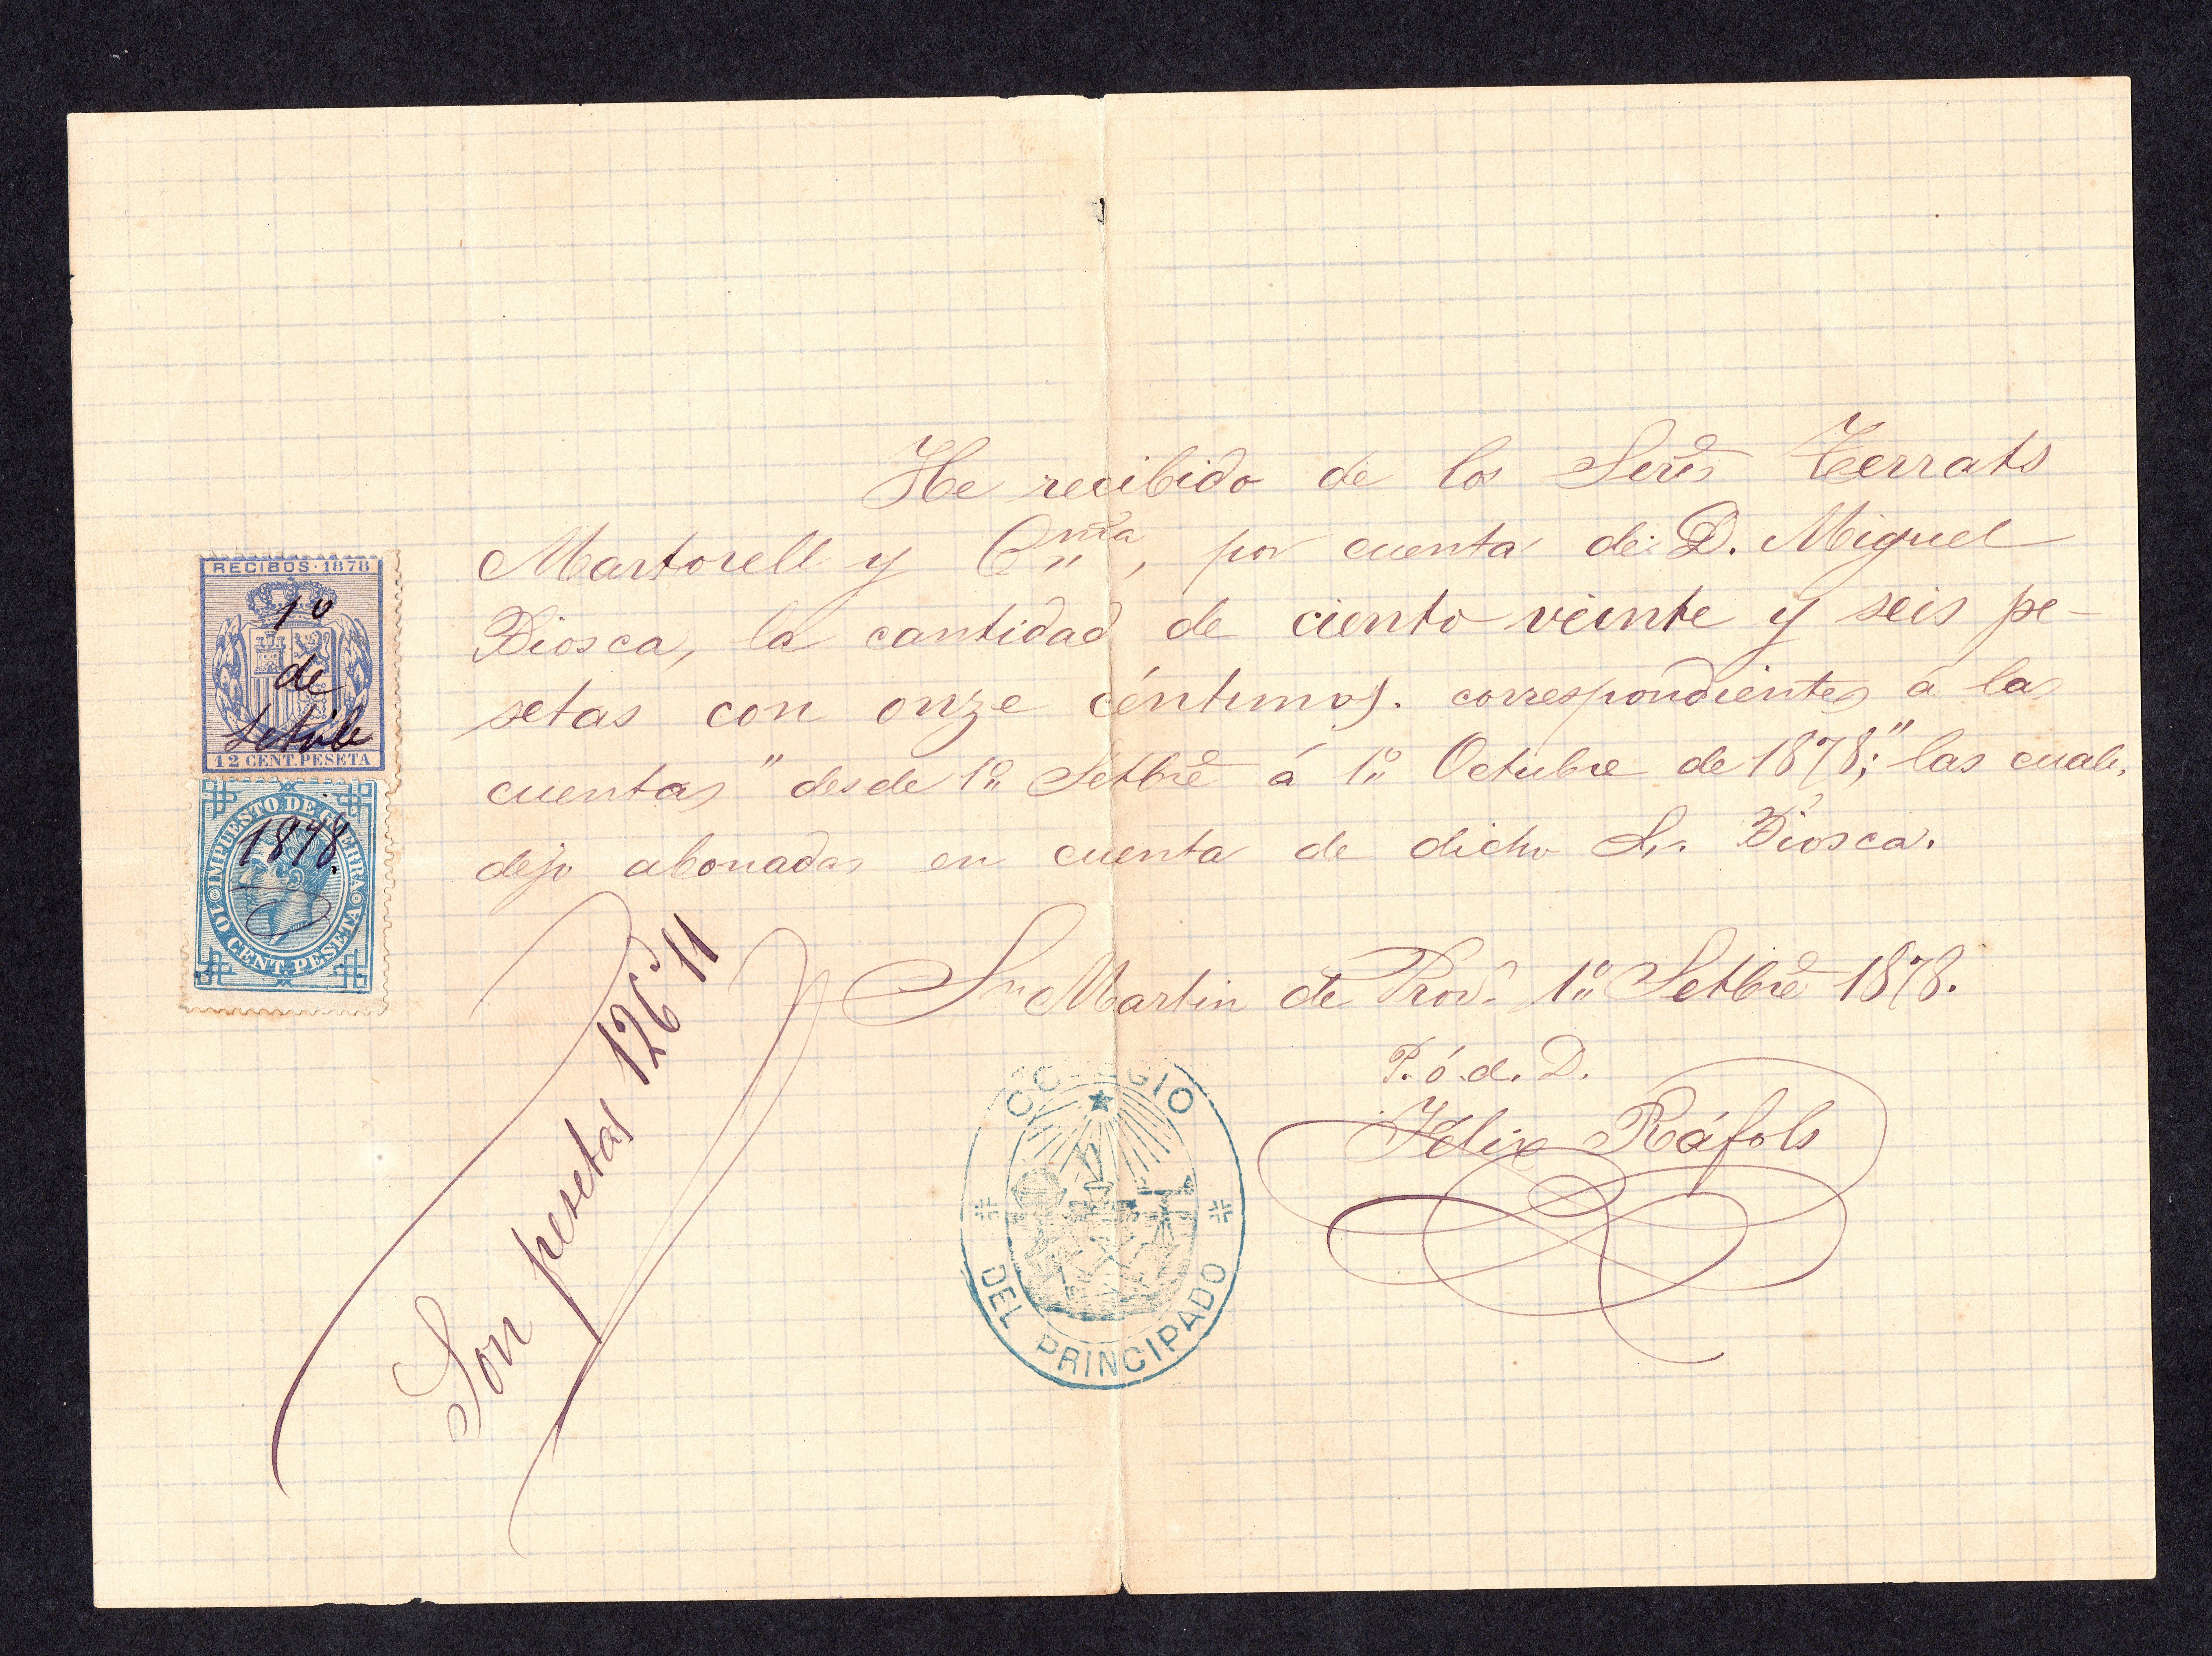 He recibido de los Seres Terrats
Martorell y Cmia, por cuenta de D. Miguel
Biosca, la cantidad de ciento veinte y seis pe-
setas con onze céntimos. correspondientes á las
cuentas "desde 1º Setbre á 1º Octubre de 1878;" las cuales
dejo abonadas en cuenta de dicho Sr. Biosca.
Sn Martin de Prov.s 1º Setbre 1878.
P. ó. d. D.
Felix Ráfols
Son pesetas 126'11
RECIBOS · 1878
1º
de
Setbre
12 CENT. PESETA
IMPUESTO DE GUERRA
1878.
10 CENT. PESETA
COLEGIO
DEL PRINCIPADO